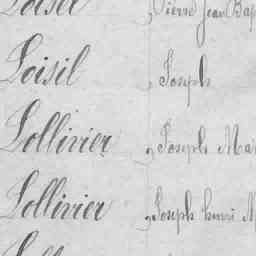 Loisel , Pierre Jean Bap
Loisil , Joseph
Lollivier , Joseph Mar
Lollivier , Joseph henri M